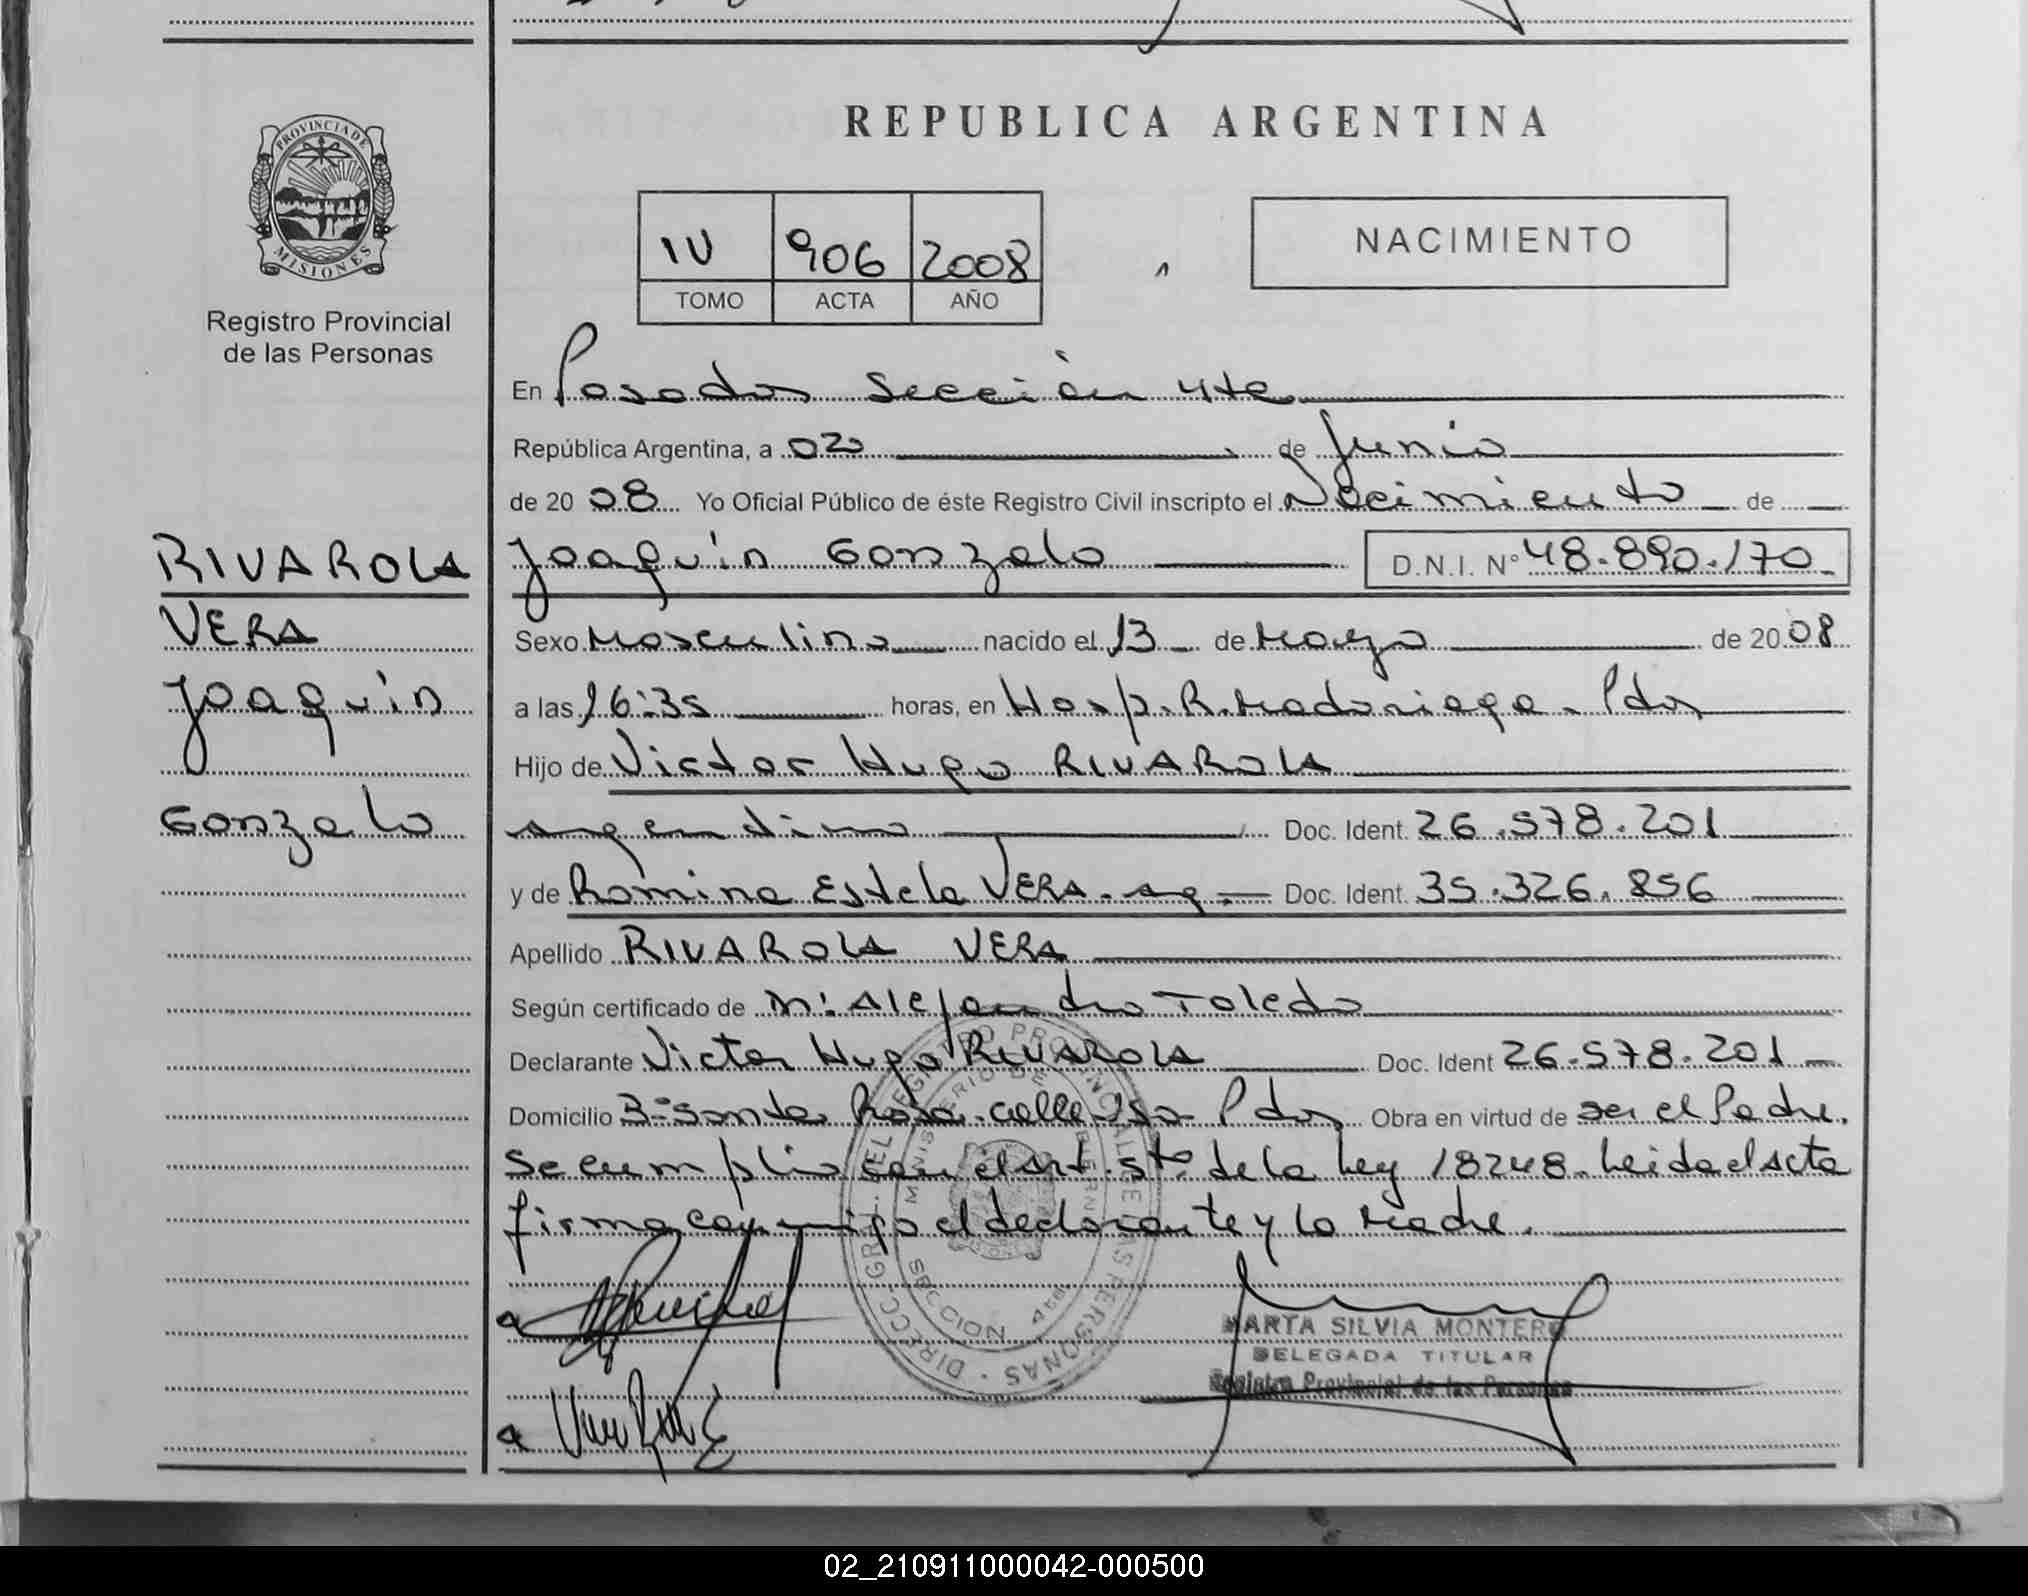 REPUBLICA ARGENTINA
PROVINCIA DE
MISIONES
Registro Provincial
de las Personas
IV 906 2008
TOMO ACTA AÑO
NACIMIENTO
En Posadas Sección 4ta
República Argentina, a 02 de Junio
de 20 08 Yo Oficial Público de éste Registro Civil inscripto el Nacimiento de
Joaquín Gonzalo D.N.I. N° 48.890.170
RIVAROLA
VERA
Joaquín
Gonzalo
Sexo Masculino nacido el 13 de Mayo de 20 08
a las 16:35 horas, en Hosp. R. Madariaga - Pdas
Hijo de Victor Hugo RIVAROLA
argentino Doc. Ident. 26.578.201
y de Romina Estela VERA - arg. Doc. Ident. 35.326.856
Apellido RIVAROLA VERA
Según certificado de Alejandro Toledo
Declarante Victor Hugo RIVAROLA Doc. Ident 26.578.201
Domicilio Bº Santa Rosa - calle Pdas Obra en virtud de ser el Padre.
Se cumplio con el art. 5to de la Ley 18248. Leida el acta
firma conmigo el declarante y la Madre.
DIRECC. GRAL. DEL REGISTRO PROVINCIAL DE LAS PERSONAS
MINISTERIO DE GOBIERNO
SECCION 4ta
MARTA SILVIA MONTERO
DELEGADA TITULAR
Registro Provincial de las Personas
02_210911000042-000500